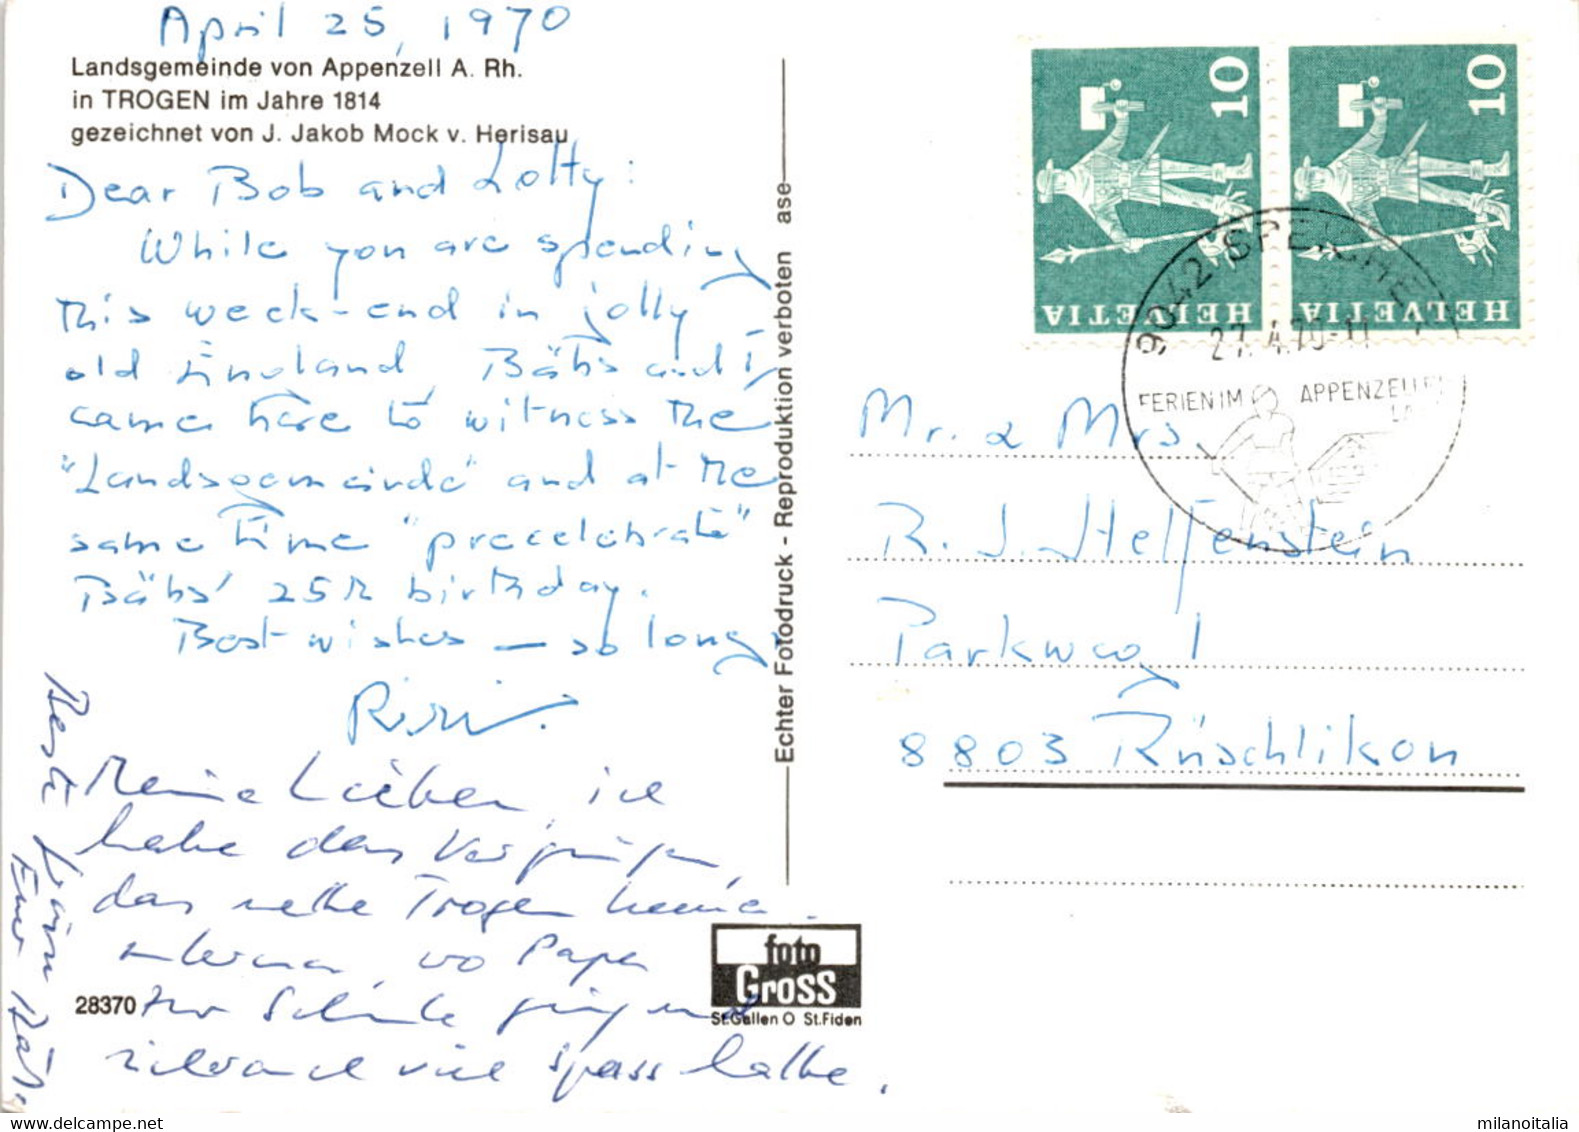 April 25, 1970
Landsgemeinde von Appenzell A. Rh.
in TROGEN im Jahre 1814
gezeichnet von J. Jakob Mock v. Herisau
Dear Bob and Lotty:
While you are spending
this week-end in jolly
old England, Bäbs and I
came here to witness the
"Landsgemeinde" and at the
same time "precelebrate"
Bäbs' 25th birthday.
Best wishes — so long,
Meine Lieben, ich
habe das Vergnügen,
das nette Trogen kennen
wo Papa
zur Schule ging und
viel Spass hatte.
Beste
Eure Bäbs
28370
Echter Fotodruck - Reproduktion verboten ase
foto
Gross
St.Gallen O St.Fiden
10
HELVETIA
10
HELVETIA
9042 SPEICHER
27.4.70-11
FERIEN IM APPENZELLER
Mr. & Mrs.
R. J. Helfenstein
Parkway 1
8803 Rüschlikon
www.delcampe.net
milanoitalia